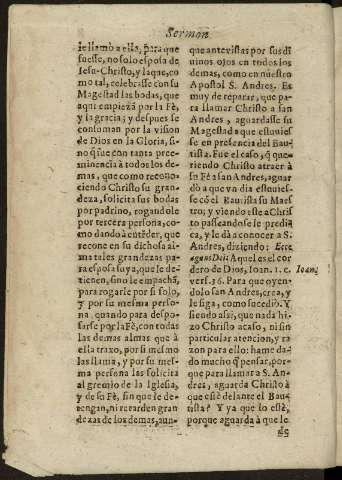 Sermon
le llamò a ella, para que
fuesse, no solo esposa de
Iesu-Christo, y la que, co
mo tal, celebrasse con su
Magestad las bodas, que
aqui empieçã por la Fè,
y la gracia; y despues se
consuman por la vision
de Dios en la Gloria, si-
no que con tanta pree-
minencia à todos los de-
mas, que como recono-
ciendo Christo su gran-
deza, solicita sus bodas
por padrino, rogandole
por tercera persona, co-
mo dando à entẽder, que
recone en su dichosa al-
ma tales grandezas pa-
ra esposa suya, que le de-
tienen, sino le empachã,
para rogarle por si solo,
y por su mesma perso-
na quando para despo-
sarse por la Fè, con todas
las demas almas que à
ella traxo, por si mesmo
las llama, y por su mes-
ma persona las solicita
al gremio de la Iglesia,
y de su Fè, sin que le de-
tengan, ni retarden gran
dezas de los demas, aun-
que antevistas por sus di
uinos ojos en todos los
demas, como en nuestro
Apostol S. Andres. Es
muy de reparar, que pa-
ra llamar Christo a san
Andres, aguardasse su
Magestad a que estuuies
se en presencia del Bau-
tista. Fue el caso, q̃ que-
riendo Christo atraer à
su Fè a san Andres, aguar
dò a que vn dia estuuies-
se cõ el Bautista su Maes
tro; y viendo este a Chris
to passeandose le predi-
ca, y le dà a conocer a S.
Andres, diziendo: Ecce
agnus Dei: Aquel es el cor
dero de Dios, Ioan. 1. c.
Ioan.
vers. 36. Para que oyen-
dolo san Andres, crea, y
le siga, como sucediò. Y
siendo assi, que nada hi-
zo Christo acaso, ni sin
particular atencion, y ra
zon para ello: hame da-
do mucho q̃ pensar, por-
que para llamar a S. An-
dres, aguarda Christo à
que estè delante el Bau-
tista? Y ya que lo estè,
porque aguarda à que le